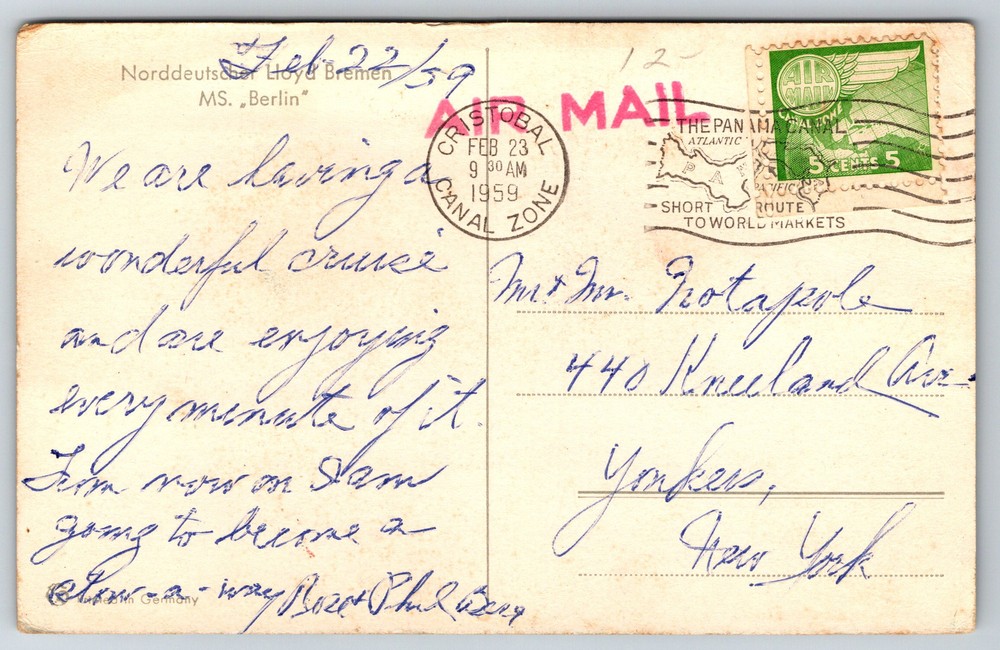 Feb-22/59
Norddeutscher Lloyd Bremen
MS. „Berlin"
12-
AIR MAIL
CRISTOBAL
FEB 23
9 30 AM
1959
CANAL ZONE
THE PANAMA CANAL
ATLANTIC
PA
PACIFIC
SHORT ROUTE
TO WORLD MARKETS
AIR
MAIL
CANAL ZONE
5 CENTS 5
We are having a
wonderful cruise
and are enjoying
every minute of it.
From now on I am
going to become a
stow-a-way
& Phil Berg
Printed in Germany
Mr & Mrs. Notapole
440 Kneeland Ave.
Yonkers,
New York